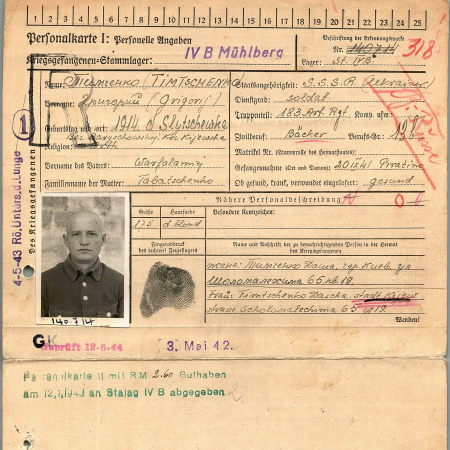 1 2 3 4 5 6 7 8 9 10 11 12 13 14 15 16 17 18 19 20 21 22 23 24 25
Personalkarte I: Personelle Angaben
Beschriftung der Erkennungsmarke
Kriegsgefangenen-Stammlager: IV B Mühlberg
Nr. 140714 318
Lager: St. IVB
Des Kriegsgefangenen
4-5-43 Rö. Unters. d. Lunge
1
Name: Тимченко (TIMTSCHENKO
Staatsangehörigkeit: S.S.S.R.
Vorname: Григорий (Grigorij
Dienstgrad: soldat
Truppenteil: 183 Art Rgt. Komp. usw.:
Geburtstag und -ort: 1914 d Slytschewka
Zivilberuf: Bäcker Berufs-Gr.:
Religion:
Matrikel Nr. (Stammrolle des Heimatstaates):
Vorname des Vaters:
Gefangennahme (Ort und Datum): 20 IX 41 Piratino
Familienname der Mutter: Tabatschenko
Ob gesund, krank, verwundet eingeliefert: gesund
Nähere Personalbeschreibung
Größe Haarfarbe Besondere Kennzeichen:
175 d. blond
Fingerabdruck
des rechten! Zeigefingers
Name und Anschrift der zu benachrichtigenden Person in der Heimat
des Kriegsgefangenen
жена: Тимченко Даша, гор. Киев, ул
Шоломалехима 65 кв 19.
Frau: Timtschenko Dascha, stadt Kijew
strasse Scholomalechima 65 w 19.
140714
Wenden!
GK
Geprüft 12-6-44
3. Mai 42.
Personalkarte II mit RM 2.60 Guthaben
am 12.1.1943 an Stalag IV B abgegeben